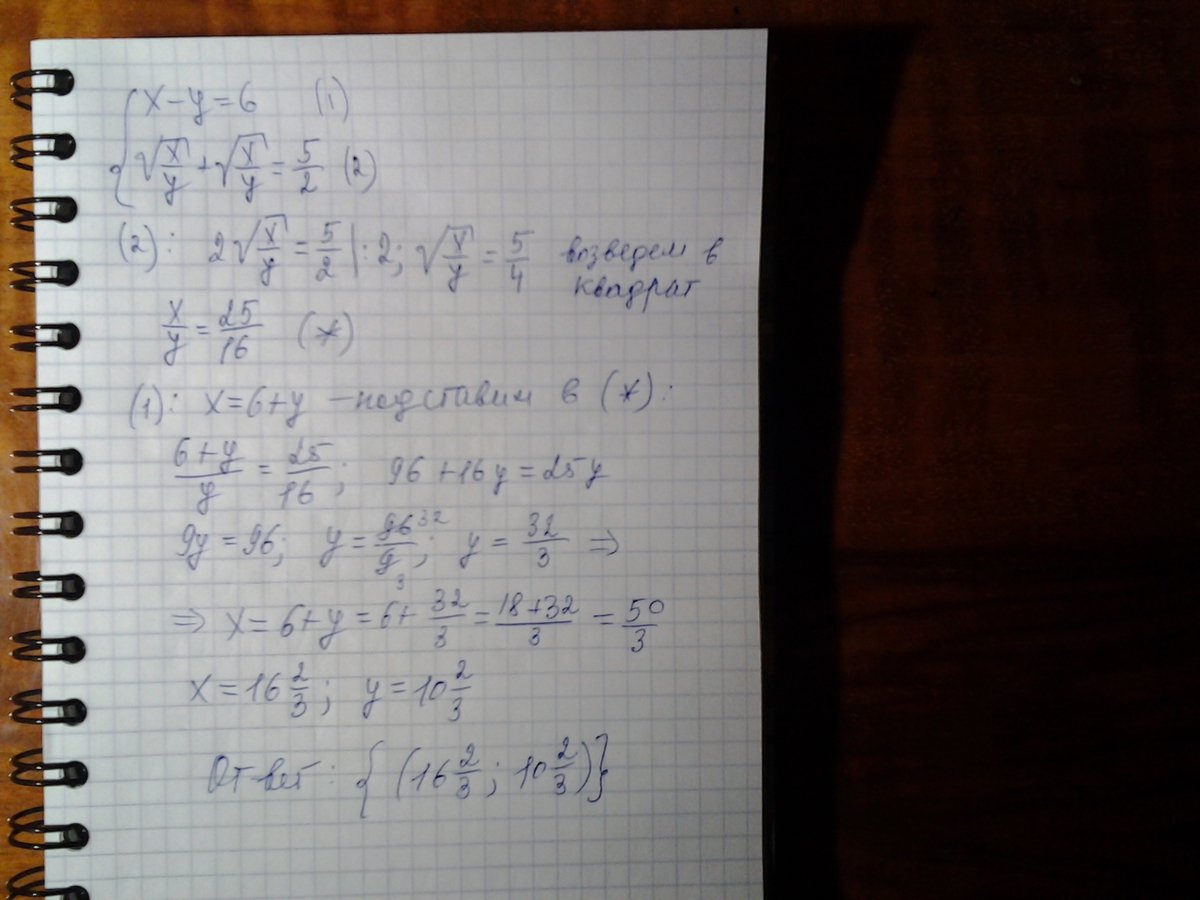 { x-y=6 (1)
√x/y + √x/y = 5/2 (2)
(2): 2√x/y = 5/2 |:2; √x/y = 5/4 возведем в
квадрат
x/y = 25/16 (*)
(1): x=6+y – подставим в (*):
6+y/y = 25/16; 96+16y=25y
9y=96; y=96/9 32 3; y=32/3 ⇒
⇒ x=6+y=6+32/3=18+32/3=50/3
x=16 2/3; y=10 2/3
Ответ: {(16 2/3; 10 2/3)}